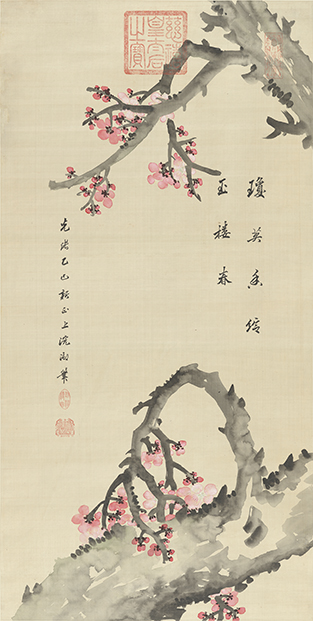 慈禧
皇太后
之寶
瓊英香
玉樓春
光緒乙巳新正上浣御筆